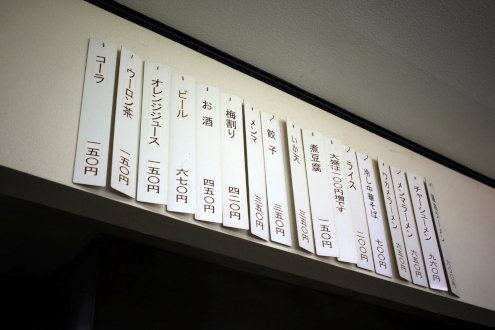 コーラ 一五〇円
ウーロン茶 一五〇円
オレンジジュース 一五〇円
ビール 六七〇円
お酒 四五〇円
梅割り 四二〇円
メンマ 三五〇円
餃子 三五〇円
いか天 三五〇円
煮豆腐 一五〇円
大盛は一〇〇円増です
ライス 二〇〇円
冷し中華そば 七〇〇円
ワカメラーメン 六五〇円
メンマラーメン 六五〇円
チャーシューメン 九六〇円